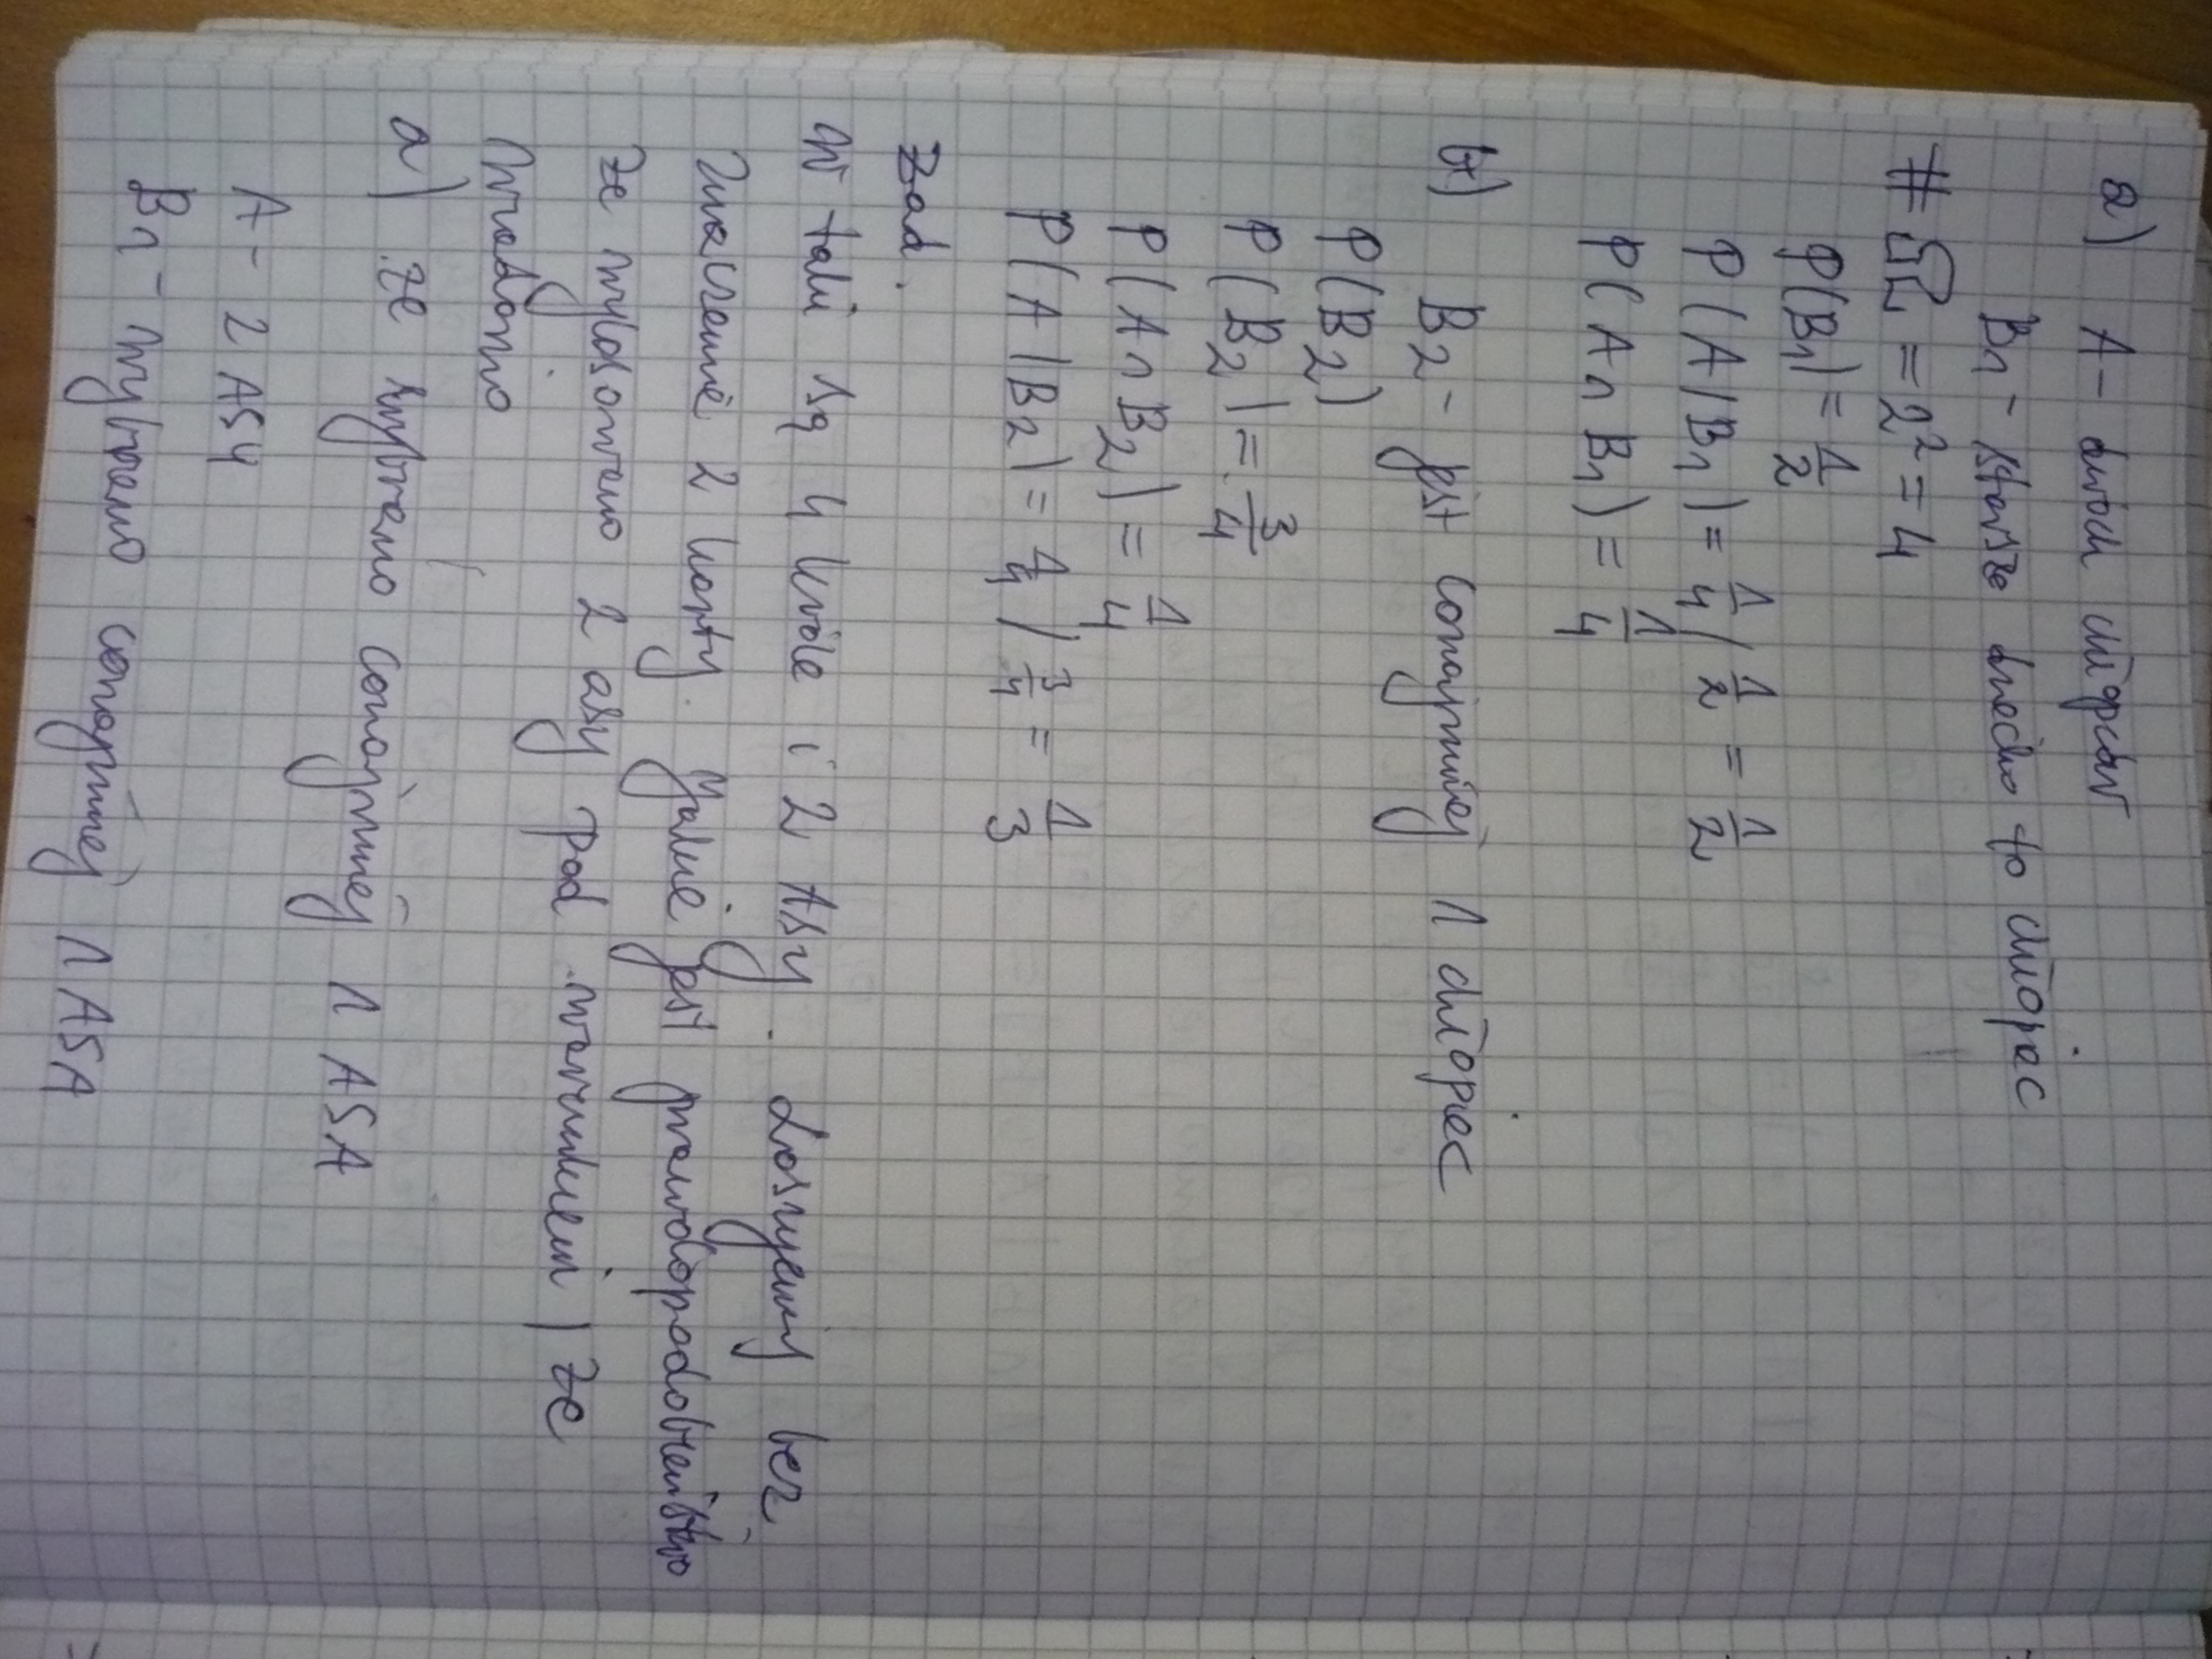 a) A - dwóch chłopców
B₁ - starsze dziecko to chłopiec
# Ω = 2² = 4
P(B₁) = 1/2
P(A/B₁) = 1/4 / 1/2 = 1/2
P(A∩B₁) = 1/4
b) B₂ - jest conajmniej 1 chłopiec
P(B₂)
P(B₂) = 3/4
P(A∩B₂) = 1/4
P(A/B₂) = 1/4 / 3/4 = 1/3
Zad.
W talii są 4 króle i 2 Asy. Losujemy bez
zwracenie 2 karty. Jakie jest prawdopodobieństwo
że wylosowano 2 asy pod warunkiem, że
wiadomo
a) że wybrano conajmniej 1 ASA
A - 2 ASY
B₁ - wybrano conajmniej 1 ASA